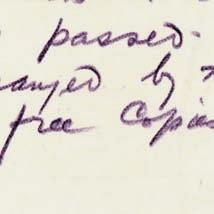 passed.
anged by
free Copies